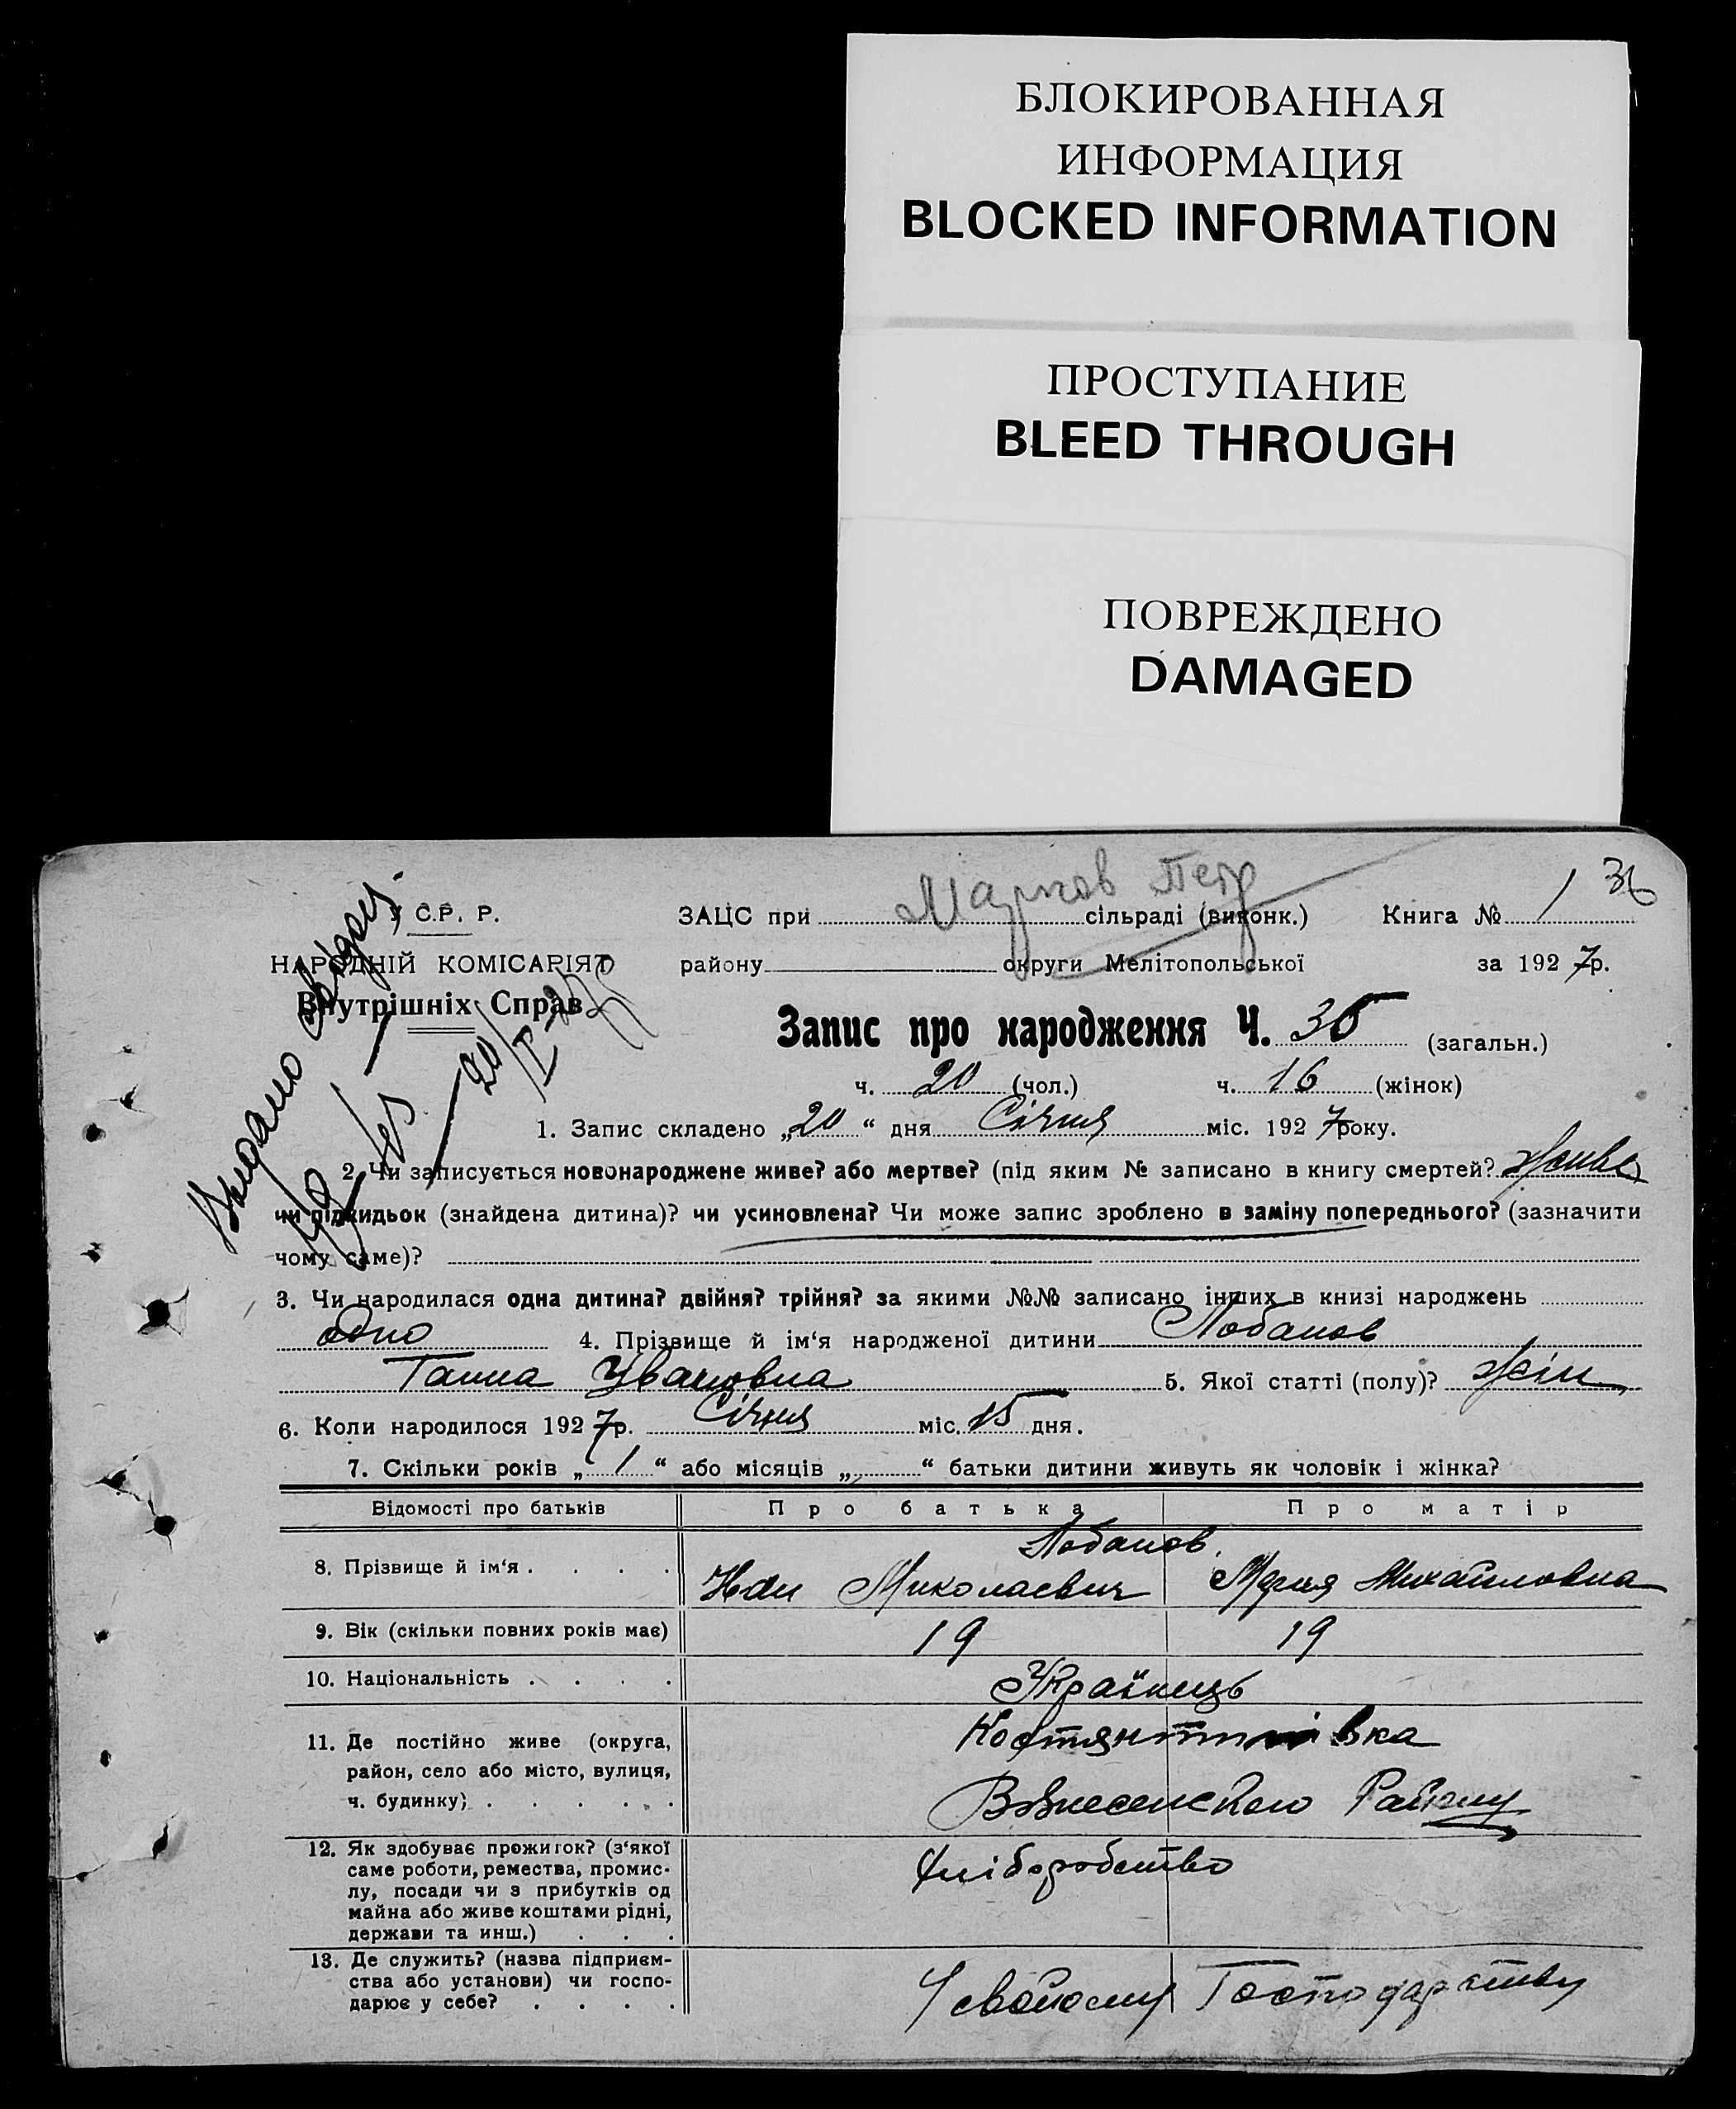 БЛОКИРОВАННАЯ
ИНФОРМАЦИЯ
BLOCKED INFORMATION
ПРОСТУПАНИЕ
BLEED THROUGH
ПОВРЕЖДЕНО
DAMAGED
36
У С.Р. Р.
НАРОДНІЙ КОМІСАРІЯТ
Внутрішніх Справ
Видано
ЗАЦС при сільраді (виконк.) Книга № 1
району округи Мелітопольської за 1927р.
Запис про народження Ч. 36 (загальн.)
ч. 20 (чол.) ч. 16 (жінок)
1. Запис складено „20“ дня Січня міс. 1927 року.
2. Чи записується новонароджене живе? або мертве? (під яким № записано в книгу смертей? живе
чи підкидьок (знайдена дитина)? чи усиновлена? Чи може запис зроблено в заміну попереднього? (зазначити
чому саме)?
3. Чи народилася одна дитина? двійня? трійня? за якими №№ записано інших в книзі народжень
одно 4. Прізвище й ім‘я народженої дитини Лобанов
Ганна Ивановна 5. Якої статті (полу)? жін
6. Коли народилося 1927р. Січня міс. 15 дня.
7. Скільки років „1“ або місяців „ “ батьки дитини живуть як чоловік і жінка?
Відомості про батьків Про батька Про матір
Лобанов
8. Прізвище й ім‘я . . . . Миколаевич Мария Михайловна
9. Вік (скільки повних років має) 19 19
10. Національність . . . . Українець
11. Де постійно живе (округа, Костянтинівка
район, село або місто, вулиця,
ч. будинку) . . . . . Вознесенского Району
12. Як здобуває прожиток? (з‘якої Хліборобство
саме роботи, ремества, промис-
лу, посади чи з прибутків од
майна або живе коштами рідні,
держави та инш.) . . .
13. Де служить? (назва підприєм-
ства або установи) чи госпо- У свойому Господарству
дарює у себе? . . . .